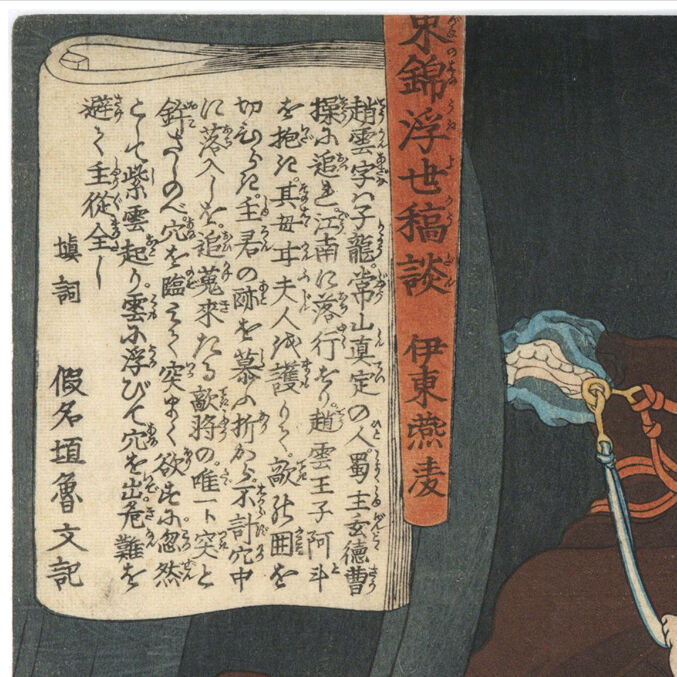 東錦浮世稿談
伊東燕凌
趙雲字ハ子龍。常山真定の人。蜀主玄徳曹
操に追れ江南に落行をり。趙雲王子阿斗
を抱き。其母𫟒夫人を護りて。敵の囲を
切ひらき。主君の跡を慕ふ折から不計穴中
に落入しを。追蒐来たる敵将の。唯一ト突と
鉾さしのべ穴を臨ミて突まく欲せしに忽然
として紫雲起り。雲に浮びて穴を出危難を
避て主従全し
填詞
假名垣魯文記